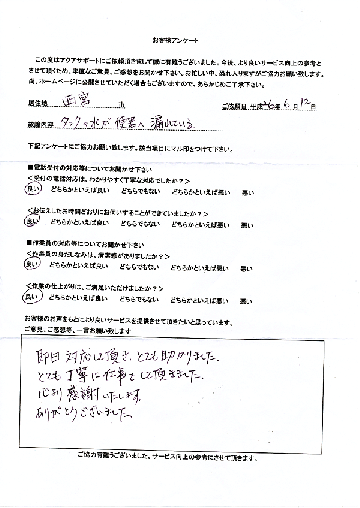 お客様アンケート
この度はアクアサポートにご依頼頂き誠に有難うございました。今後、より良いサービス向上の参考と
させて頂くため、率直なご意見、ご感想をお聞かせ下さい。お忙しい中、恐れ入りますがご協力お願い致します。
尚、ホームページに公開させていただく場合もございますので、あらかじめご了承下さい。
居住地 西宮 市 ご依頼日 平成 年 6月 12日
依頼内容 タンクの水が便器へ漏れている
下記アンケートにご協力お願い致します。該当項目にマル印をつけて下さい。
■電話受付の対応等についてお聞かせ下さい
<受付の電話対応は、わかりやすく丁寧な対応でしたか?>
良い どちらかといえば良い どちらでもない どちらかといえば悪い 悪い
<お伝えしたお時間どおりにお伺いすることができていましたか?>
良い どちらかといえば良い どちらでもない どちらかといえば悪い 悪い
■作業員の対応等についてお聞かせ下さい
<作業員の身だしなみは、清潔感がありましたか?>
良い どちらかといえば良い どちらでもない どちらかといえば悪い 悪い
<作業の仕上がりは、ご満足いただけましたか?>
良い どちらかといえば良い どちらでもない どちらかといえば悪い 悪い
お客様のお声をもとにより良いサービスを提供させて頂きたいと思っています。
ご意見、ご感想等、一言お願い致します
即日対応して頂き、とても助かりました。
とても丁寧に仕事をして頂きました。
心より感謝いたします。
ありがとうございました。
ご協力有難うございました。サービス向上の参考にさせて頂きます。